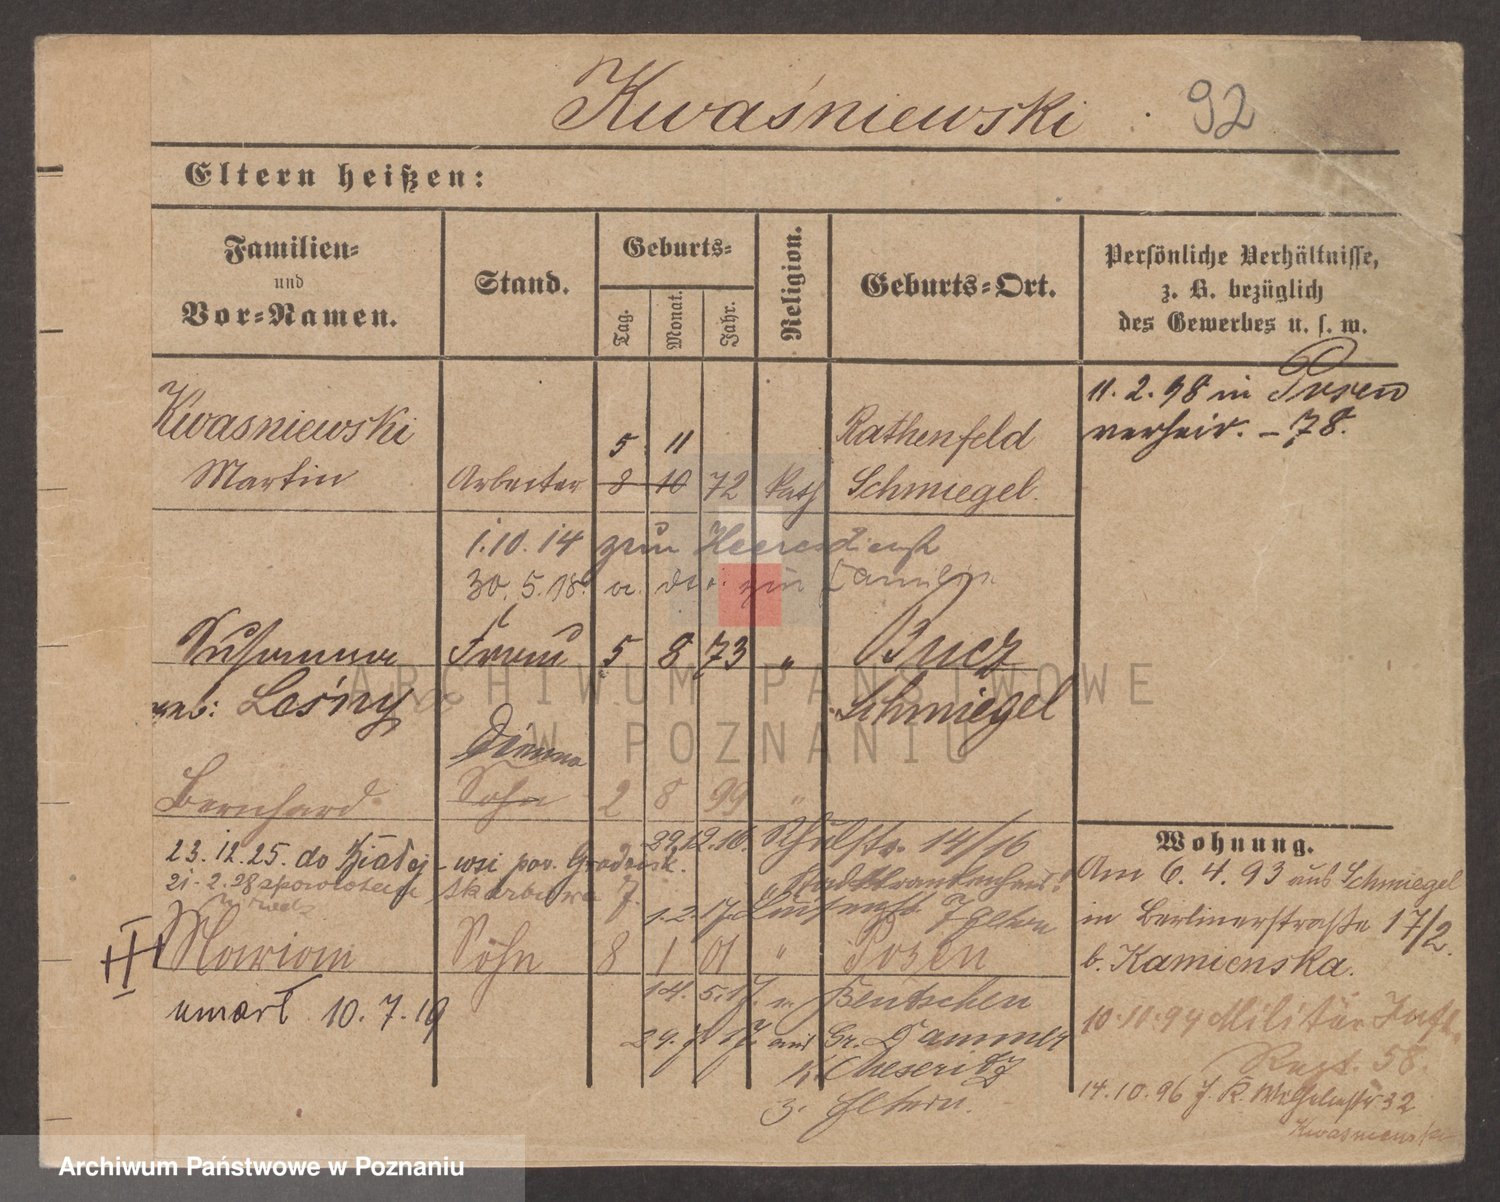 Kwaśniewski 92
Eltern heißen:
Familien-
und
Vor-Namen.
Stand.
Geburts-
Tag.
Monat.
Jahr.
Religion.
Geburts-Ort.
Persönliche Verhältnisse,
z. B. bezüglich
des Gewerbes u. s. w.
11. 2. 98 in Posen
verheir. - 78.
Kwasniewski 5 11 Rathenfeld
Martin Arbeiter 8 10 72 kath Schmiegel.
1.10.14 zum Heeresdienst
30. 5. 18. zur Familie
Susanna Frau 5 8 73 " Bucz
geb: Leśny Schmiegel
Bernhard Sohn 2 8 99 "
29.12.16. Schulstr. 14/16
23.12.25. do Białej-wsi pow. Grodzisk.
21. 2. 28 Skarbowa 7.
Stadtkrankenhaus!
1.2.17. Eltern
Marian Sohn 8 1 01 " Posen
14. 5. 17. n. Bentschen
umarł 10.7.19
29. 7. 17. aus Gr. Dammer
K. Meseritz
z. Eltern.
Wohnung.
Am 6. 4. 93 aus Schmiegel
in Berlinerstraße 17/2.
b. Kamienska.
10.10.94 Militär Inft.
Regt. 58.
14.10.96 J. K. Wilhelmstr 32
ARCHIWUM PAŃSTWOWE
W POZNANIU
Archiwum Państwowe w Poznaniu